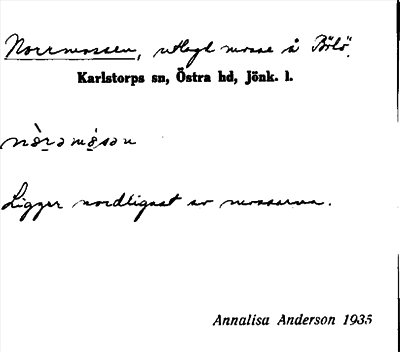 Norrmossen, utlagd mosse å Bölö.
Karlstorps sn, Östra hd, Jönk. l.
nòrəmósən
Ligger nordligast av mossarna.
Annalisa Anderson 1935